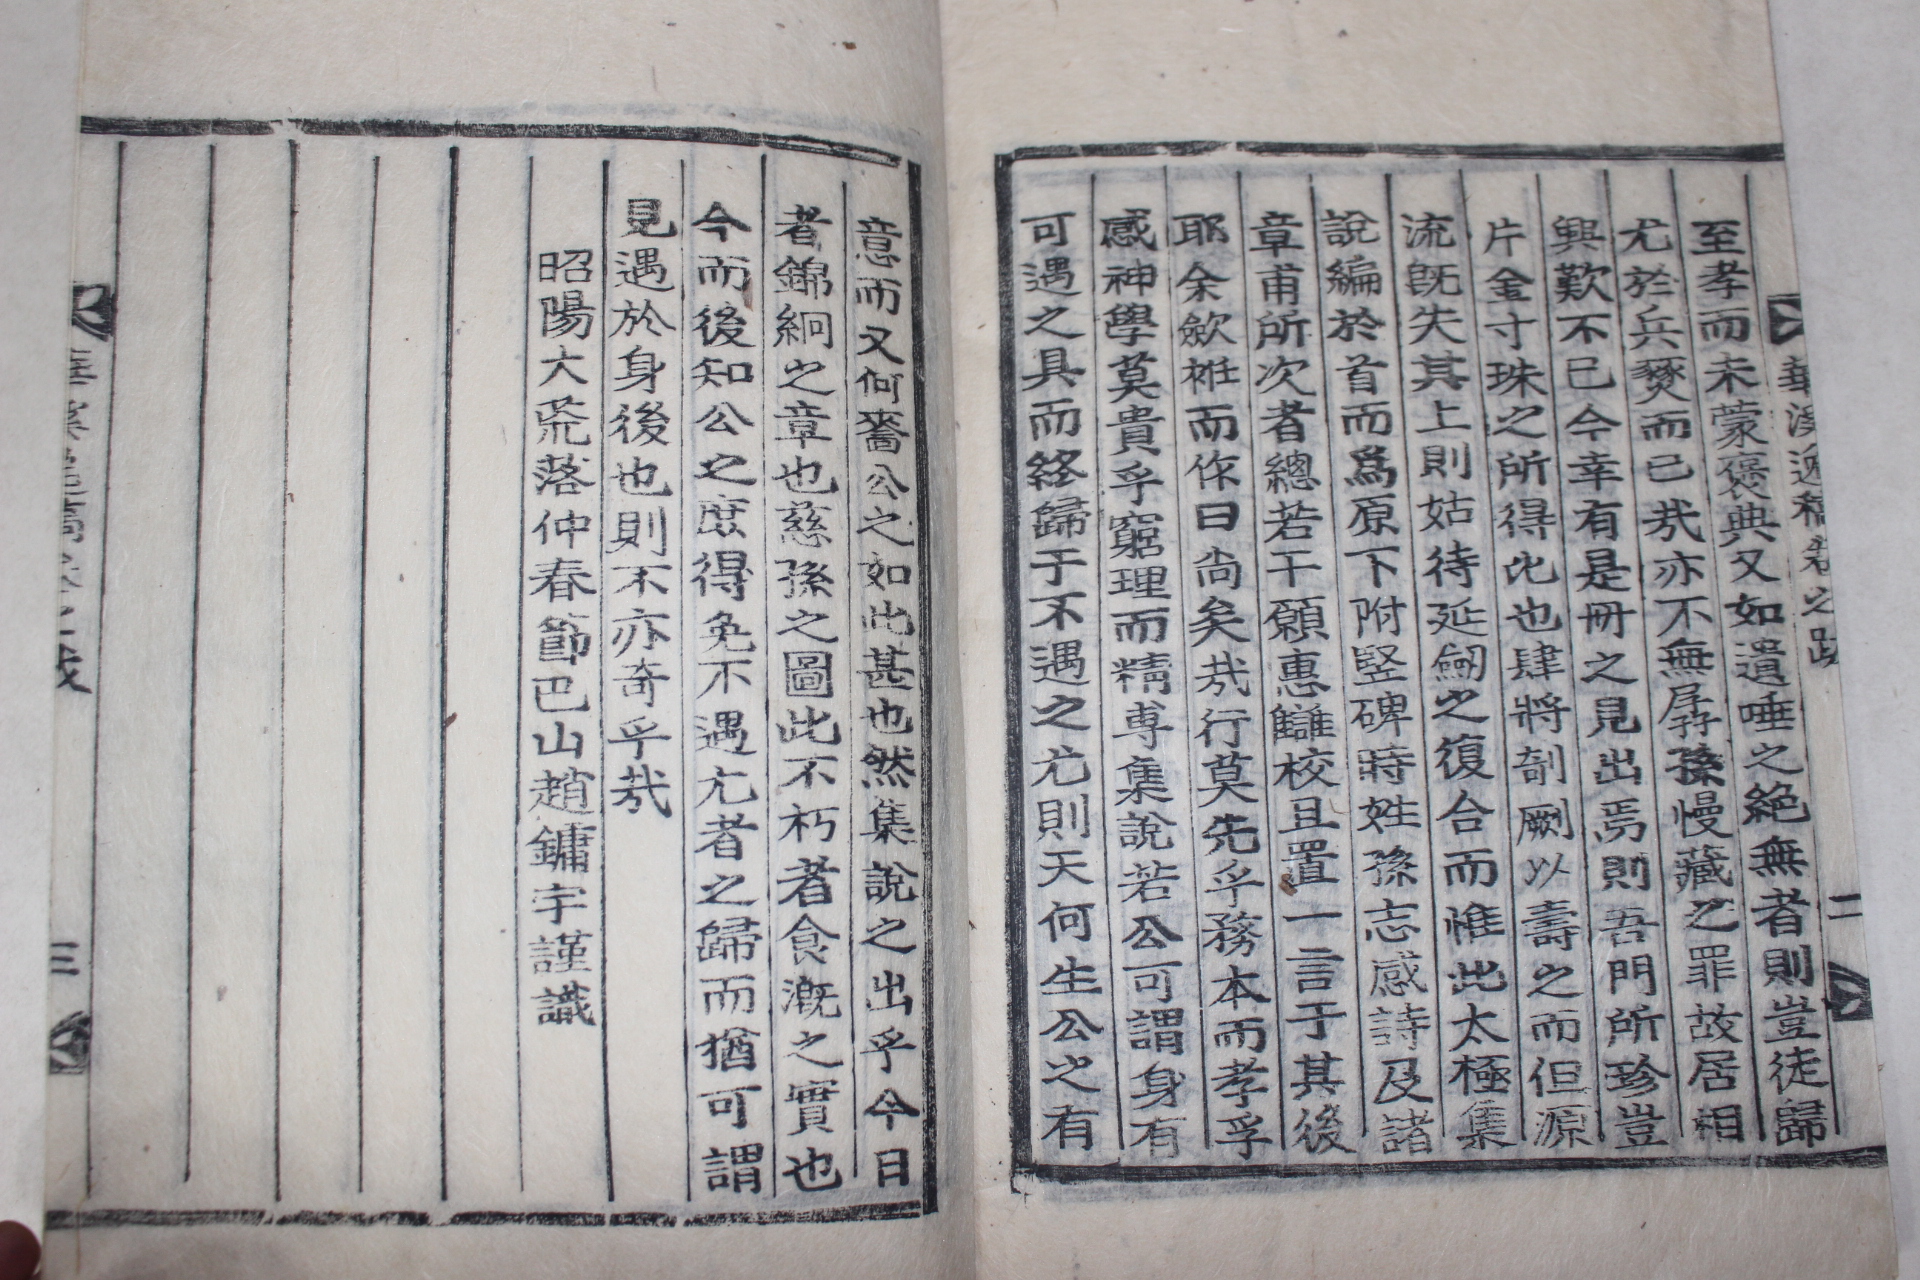 華溪逸稿卷之跋 二
至孝而未蒙褒典又如遺唾之絶無者則豈徒歸
尤於兵燹而已㦲亦不無孱孫慢藏之罪故居相
興歎不已今幸有是冊之見出焉則吾門所珍豈
片金寸珠之所得比也肆將剞劂以壽之而但源
流旣失其上則姑待延劒之復合而惟此太極集
說編於首而爲原下附竪碑時姓孫志感詩及諸
章甫所次者總若干願惠讎校且置一言于其後
耶余歛袵而作曰尙矣㦲行莫先乎務本而孝孚
感神學莫貴乎窮理而精專集說若公可謂身有
可遇之具而終歸于不遇之尤則天何生公之有
意而又何嗇公之如此甚也然集說之出乎今日
者錦絅之章也慈孫之圖此不朽者食漑之實也
今而後知公之庶得免不遇尤者之歸而猶可謂
見遇於身後也則不亦奇乎㦲
昭陽大荒落仲春節巴山趙鏞宇謹識
三